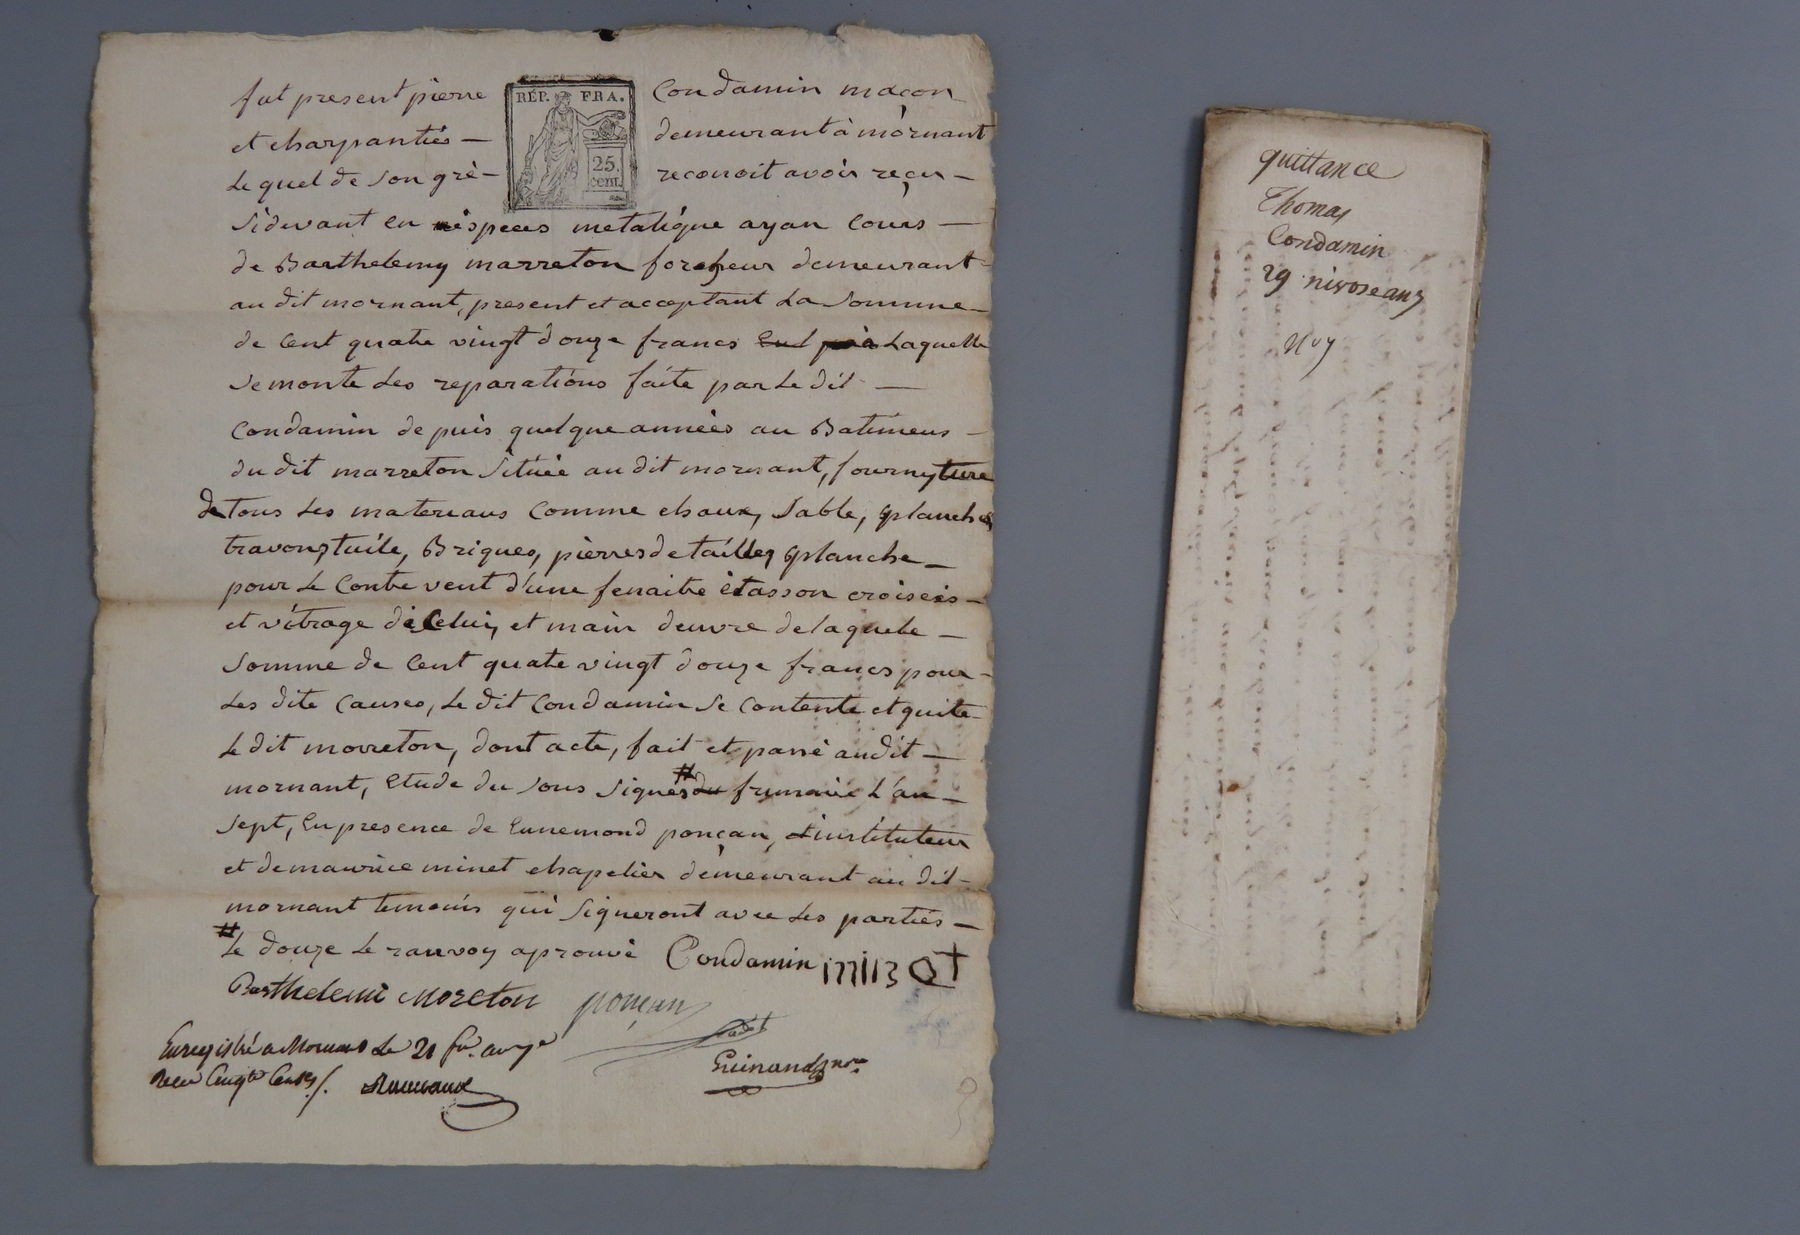 fut present pierre Condamin maçon
et charpantiés - demeurant à mornant
Lequel de son grè - reconoit avoir reçu -
sidevant en especes metalique ayan cours -
de Barthelemy marreton demeurant
au dit mornant, present et acceptant La somme
de cent quatre vingt douze francs Laquelle
se monte Les reparations faite par Le dit -
Condamin de puis quelque années au Batimens -
du dit marreton Située au dit mornant, fournyture
de tous Les materiaus comme chaux, sable, planches
travons, tuile, Briques, pierres de tailles planche -
pour Le contre vent d'une fenaitre croiseés -
et vitrage dicelui, et main deuvre de laquele -
somme de cent quatre vingt douze francs pour
Les dite causes, Le dit Condamin se contente et quite
Le dit morreton, dont acte, fait et passé au dit -
mornant, Etude du sous signés # frumaire L'an -
sept, En presence de Ennemond ponçan, instituteur
et de maurice minet chapelier demeurant au dit -
mornant temoins qui signeront avec Les partiés -
# Le douze Le ranvoy aprouvé Condamin
Barthelemi Moreton ponçan
RÉP. FRA.
25.
cent.
Enregistré a Mornant Le 21 fri. an 7e
Guinand nre
quittance
Thomas
Condamin
29 nivose an 7
No 7